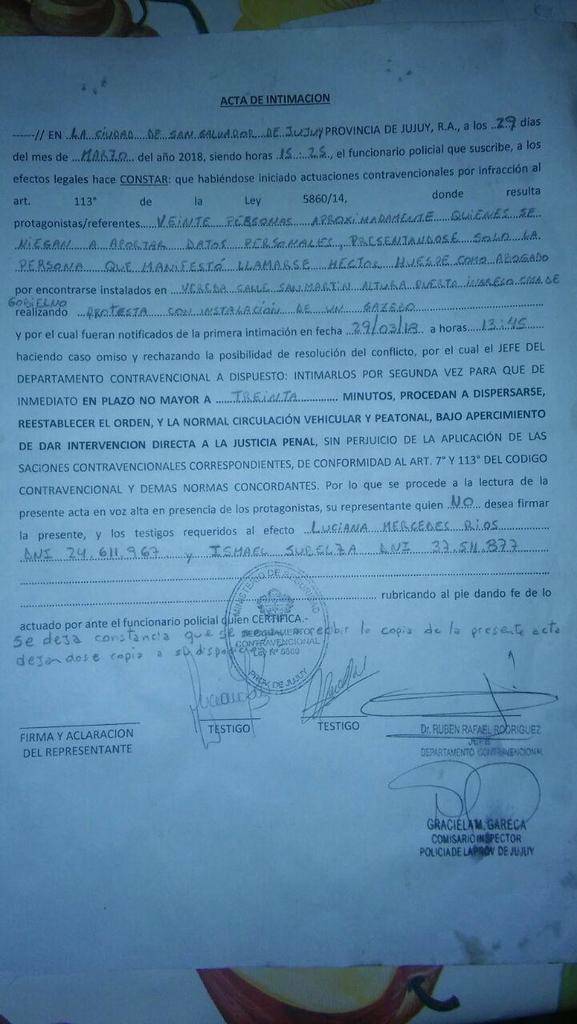 ACTA DE INTIMACION
------// EN LA CIUDAD DE SAN SALVADOR DE JUJUY PROVINCIA DE JUJUY, R.A., a los 29 días
del mes de MARZO del año 2018, siendo horas 15:25, el funcionario policial que suscribe, a los
efectos legales hace CONSTAR: que habiéndose iniciado actuaciones contravencionales por infracción al
art. 113° de la Ley 5860/14, donde resulta
protagonistas/referentes VEINTE PERSONAS APROXIMADAMENTE QUIENES SE
NIEGAN A APORTAR DATOS PERSONALES, PRESENTANDOSE SOLO LA
PERSONA QUE MANIFESTÓ LLAMARSE HECTOR HUESPE COMO ABOGADO
por encontrarse instalados en VEREDA CALLE SAN MARTIN ALTURA PUERTA INGRESO CASA DE
GOBIERNO
realizando PROTESTA CON INSTALACIÓN DE UN GAZEBO
y por el cual fueran notificados de la primera intimación en fecha 29/03/18 a horas 13:45
haciendo caso omiso y rechazando la posibilidad de resolución del conflicto, por el cual el JEFE DEL
DEPARTAMENTO CONTRAVENCIONAL A DISPUESTO: INTIMARLOS POR SEGUNDA VEZ PARA QUE DE
INMEDIATO EN PLAZO NO MAYOR A TREINTA MINUTOS, PROCEDAN A DISPERSARSE,
REESTABLECER EL ORDEN, Y LA NORMAL CIRCULACIÓN VEHICULAR Y PEATONAL, BAJO APERCIMIENTO
DE DAR INTERVENCION DIRECTA A LA JUSTICIA PENAL, SIN PERJUICIO DE LA APLICACIÓN DE LAS
SACIONES CONTRAVENCIONALES CORRESPONDIENTES, DE CONFORMIDAD AL ART. 7° Y 113° DEL CODIGO
CONTRAVENCIONAL Y DEMAS NORMAS CONCORDANTES. Por lo que se procede a la lectura de la
presente acta en voz alta en presencia de los protagonistas, su representante quien NO desea firmar
la presente, y los testigos requeridos al efecto LUCIANA MERCEDES RIOS
DNI 24.611.967 y ISMAEL SUBELZA DNI 37.511.877
rubricando al pie dando fe de lo
actuado por ante el funcionario policial quien CERTIFICA.-
Se deja constancia que se recibir la copia de la presente acta
dejandose copia a su disposición
MINISTERIO DE SEGURIDAD
CONTRAVENCIONAL
PROV. DE JUJUY
FIRMA Y ACLARACION
DEL REPRESENTANTE
TESTIGO
TESTIGO
Dr. RUBEN RAFAEL RODRIGUEZ
JEFE
DEPARTAMENTO CONTRAVENCIONAL
GRACIELA M. GARECA
COMISARIO INSPECTOR
POLICIA DE LA PROV DE JUJUY